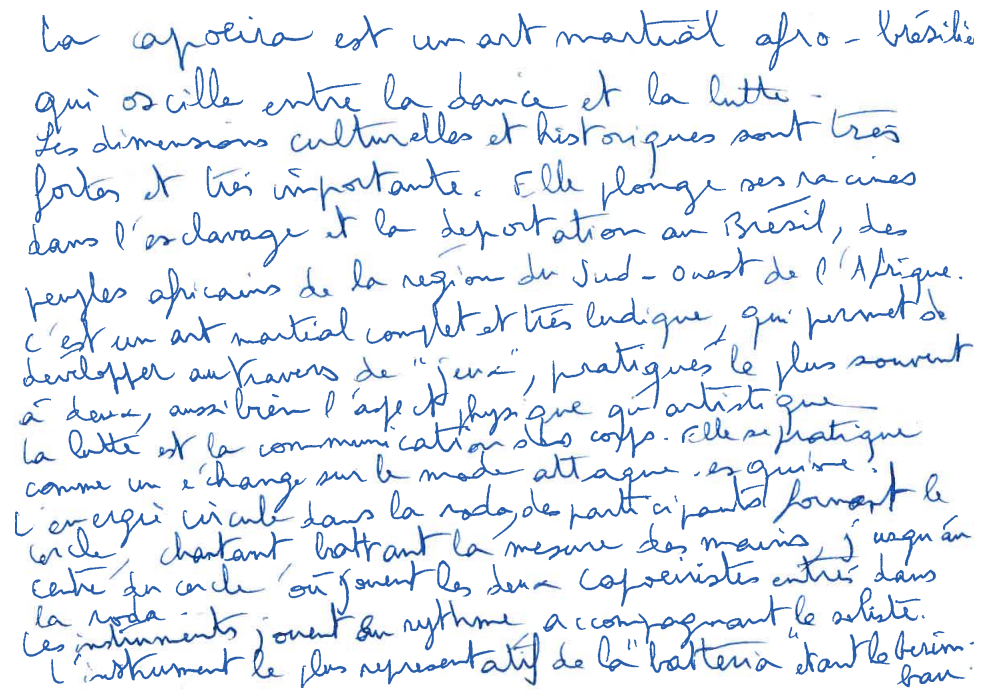 La capoeira est un art martial afro - brésilie
qui oscille entre la dance et la lutte.
Les dimensions culturelles et historiques sont très
fortes et très importante. Elle plonge ses racines
dans l'esclavage et la déportation au Brésil, des
peuples africains de la région du Sud-Ouest de l'Afrique.
C'est un art martial complet et très ludique, qui permet de
développer au travers de "jeux", pratiqués le plus souvent
à deux, aussi bien l'aspect physique qu'artistique
La lutte est la communication des corps. Elle se pratique
comme un échange sur le mode attaque. esquive.
L'énergie circule dans la roda, des participants formant le
cercle, chantant battant la mesure des mains, jusqu'au
centre du cercle où jouent les deux capoeiristes entrés dans
la roda.
Les instruments jouent un rythme accompagnant le soliste.
L'instrument le plus représentatif de la "batteria" étant le berim-
bau.